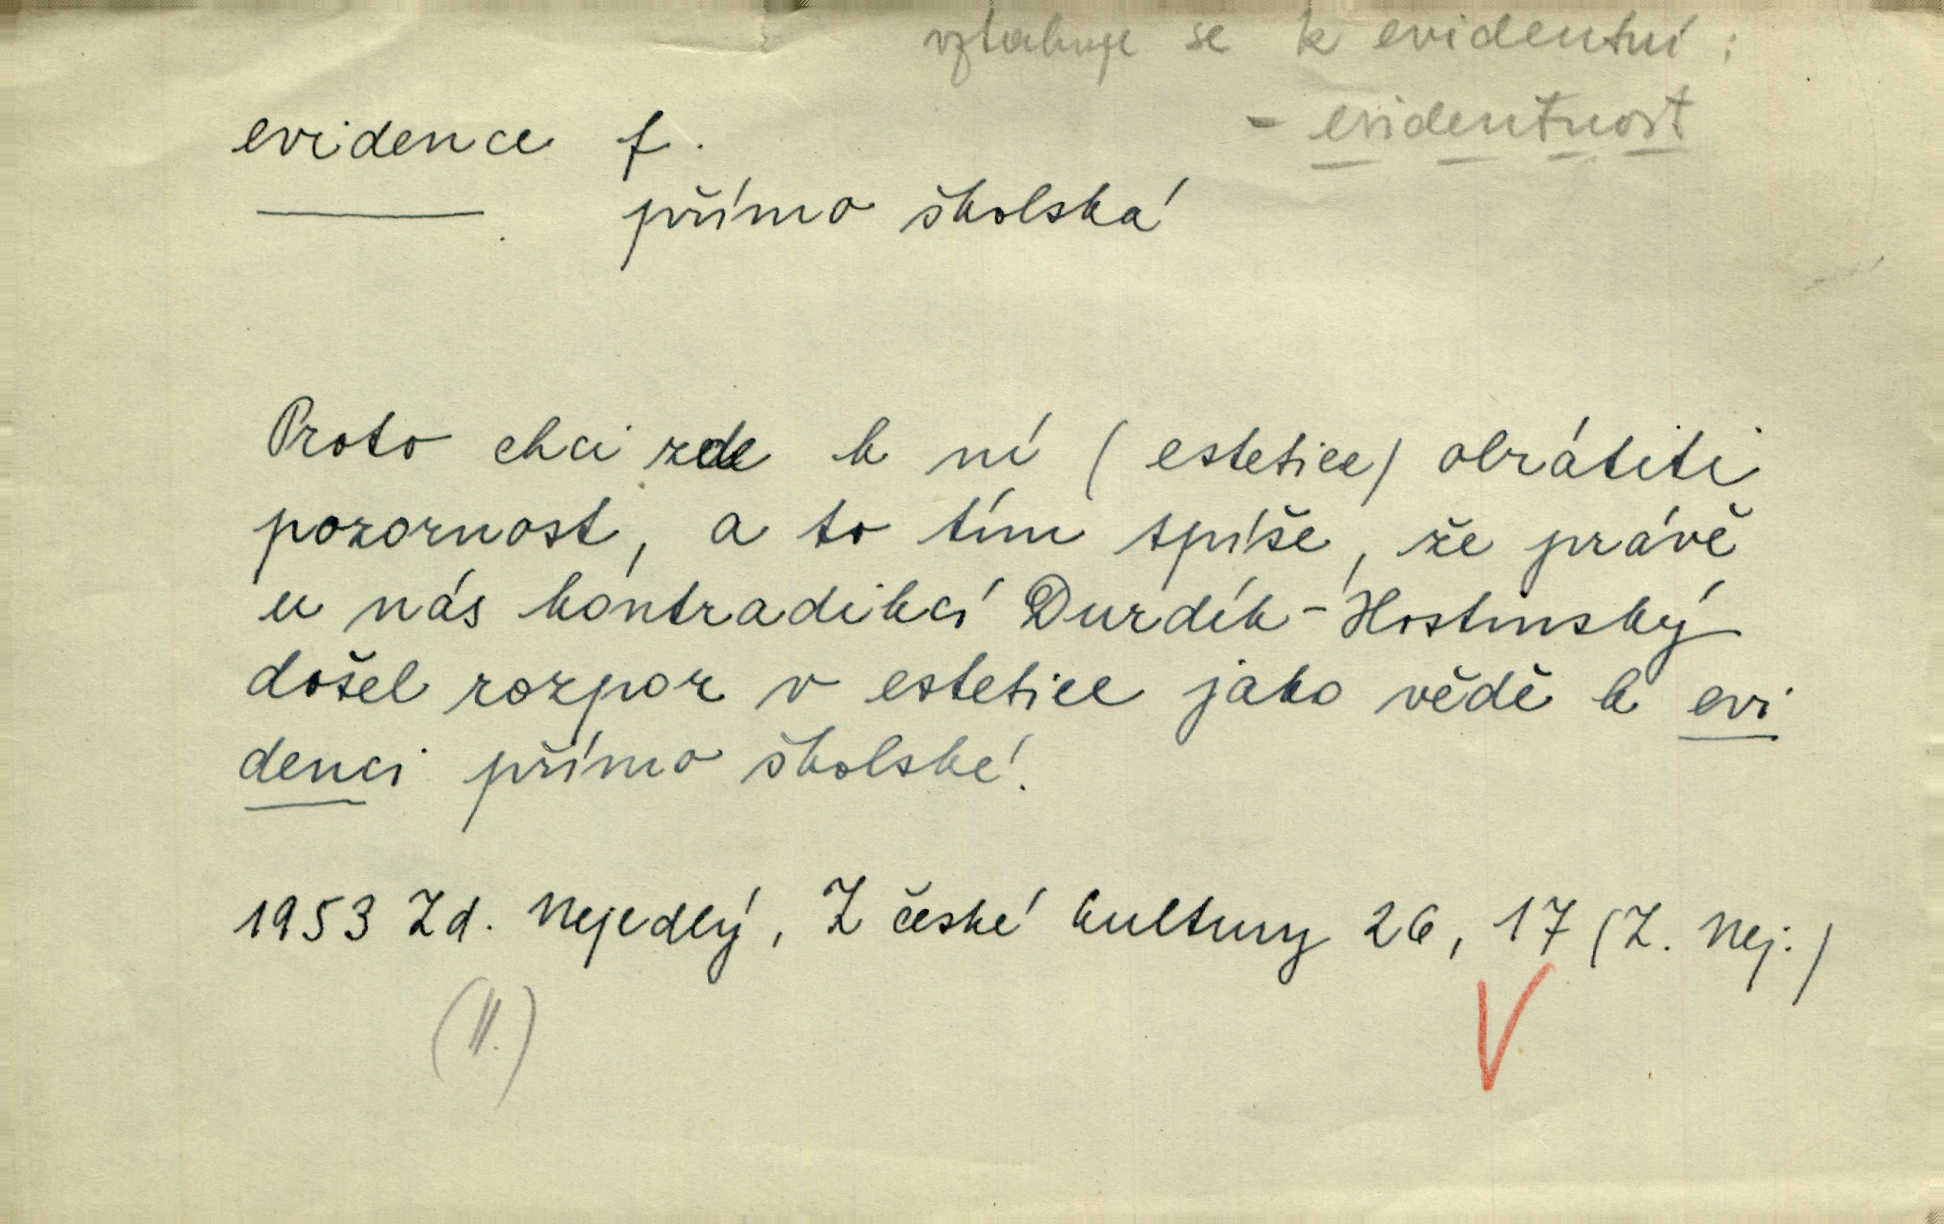 vztahuje se k evidentní:
- evidentnost
evidence f.
přímo školská
Proto chci zde k ní (estetice) obrátiti
pozornost, a to tím spíše, že právě
u nás kontradikcí Durdík-Hostinský
došel rozpor v estetice jako vědě k evi
denci přímo školské.
1953 Zd. Nejedlý, Z české kultury 26, 17 (Z. Nej.)
(II.)
V